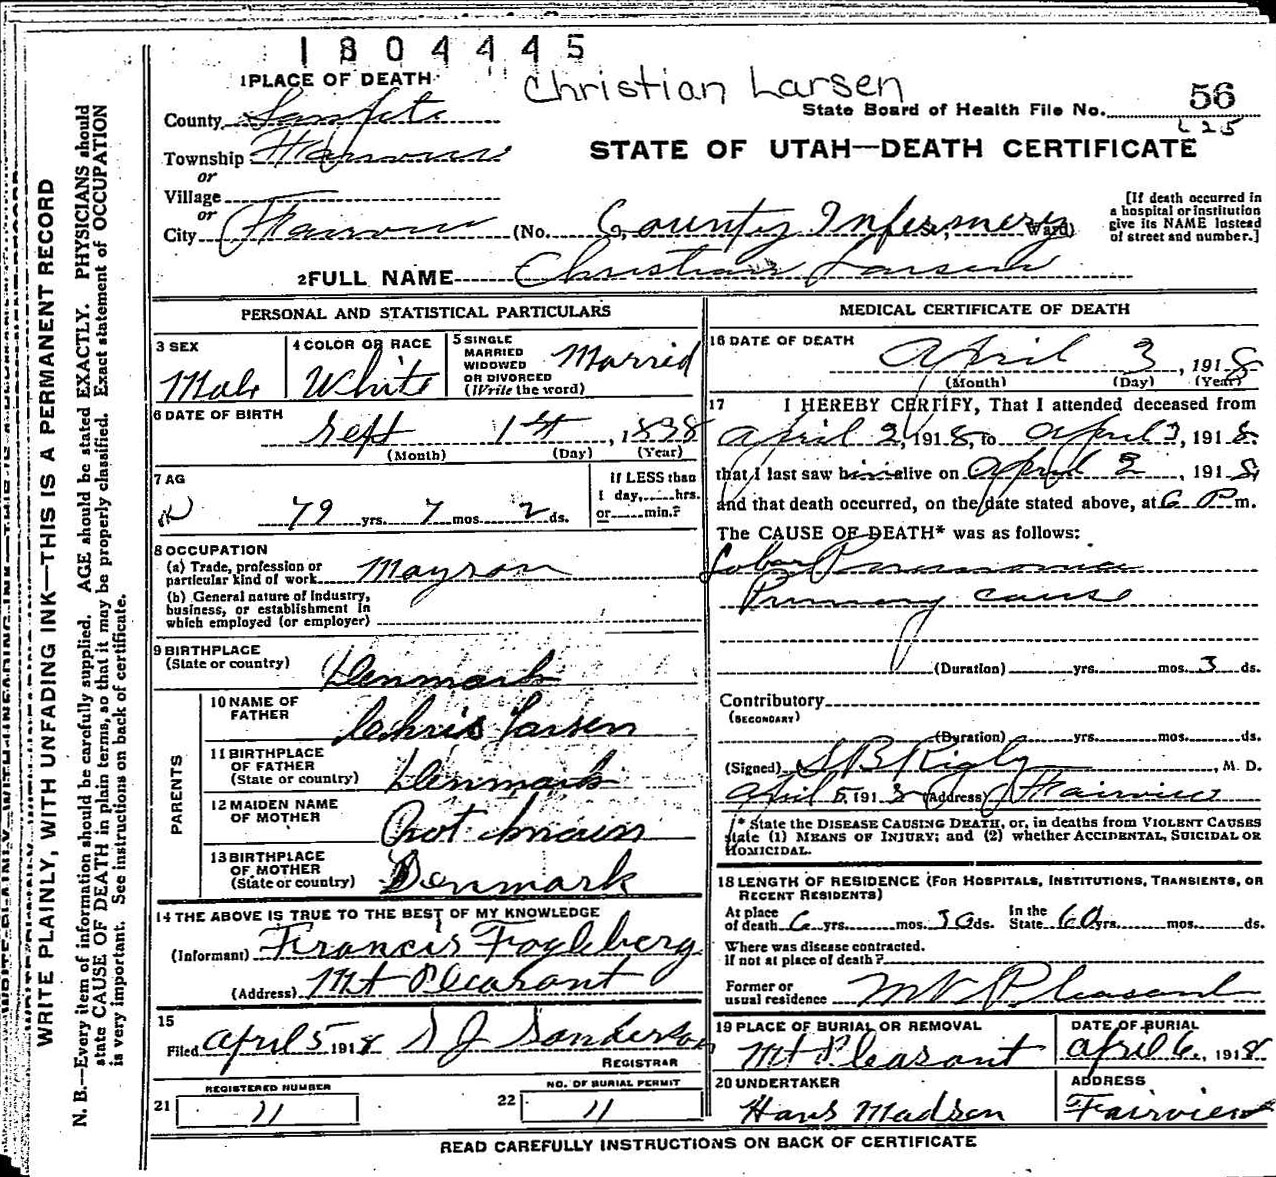 1804445
Christian Larsen
1 PLACE OF DEATH
State Board of Health File No. 56
225
County Sanpete
Township Fairview
or
Village
or
City Fairview (No. County Infirmery St.; Ward)
[If death occurred in
a hospital or institution
give its NAME instead
of street and number.]
STATE OF UTAH—DEATH CERTIFICATE
2 FULL NAME Christian Larsen
PERSONAL AND STATISTICAL PARTICULARS
3 SEX
Male
4 COLOR OR RACE
White
5 SINGLE
MARRIED
WIDOWED
OR DIVORCED
(Write the word)
Marrid
6 DATE OF BIRTH
Sept 1st, 1838
(Month) (Day) (Year)
7 AG
79 yrs. 7 mos. 2 ds.
If LESS than
1 day, hrs.
or min.?
8 OCCUPATION
(a) Trade, profession or
particular kind of work Mayson
(b) General nature of industry,
business, or establishment in
which employed (or employer)
9 BIRTHPLACE
(State or country)
Denmark
PARENTS
10 NAME OF
FATHER
Chris Larsen
11 BIRTHPLACE
OF FATHER
(State or country)
Denmark
12 MAIDEN NAME
OF MOTHER
Not known
13 BIRTHPLACE
OF MOTHER
(State or country)
Denmark
14 THE ABOVE IS TRUE TO THE BEST OF MY KNOWLEDGE
(Informant) Francis Fogleberg
(Address) Mt Pleasant
15
Filed April 5 1918 S J Sanderson
REGISTRAR
REGISTERED NUMBER
21 11
NO. OF BURIAL PERMIT
22 11
MEDICAL CERTIFICATE OF DEATH
16 DATE OF DEATH
April 3, 1918
(Month) (Day) (Year)
17 I HEREBY CERTIFY, That I attended deceased from
April 2, 1918, to April 3, 1918.
that I last saw him alive on April 2, 1918,
and that death occurred, on the date stated above, at 6 P m.
The CAUSE OF DEATH* was as follows:
Lobar Pneumonia
Primary cause
(Duration) yrs. mos. 3 ds.
Contributory
(SECONDARY)
(Duration) yrs. mos. ds.
(Signed) S B Rigby, M. D.
April 5, 1918 (Address) Fairview
* State the DISEASE CAUSING DEATH, or, in deaths from VIOLENT CAUSES
state (1) MEANS OF INJURY; and (2) whether ACCIDENTAL, SUICIDAL OR
HOMICIDAL.
18 LENGTH OF RESIDENCE (FOR HOSPITALS, INSTITUTIONS, TRANSIENTS, OR
RECENT RESIDENTS)
At place
of death yrs. mos. ds. In the
State 60 yrs. mos. ds.
Where was disease contracted.
if not at place of death?
Former or
usual residence Mt Pleasant
19 PLACE OF BURIAL OR REMOVAL
Mt Pleasant
DATE OF BURIAL
April 6, 1918
20 UNDERTAKER
Hans Madsen
ADDRESS
Fairview
READ CAREFULLY INSTRUCTIONS ON BACK OF CERTIFICATE
WRITE PLAINLY, WITH UNFADING INK—THIS IS A PERMANENT RECORD
N. B.—Every item of information should be carefully supplied. AGE should be stated EXACTLY. PHYSICIANS should
state CAUSE OF DEATH in plain terms, so that it may be properly classified. Exact statement of OCCUPATION
is very important. See instructions on back of certificate.